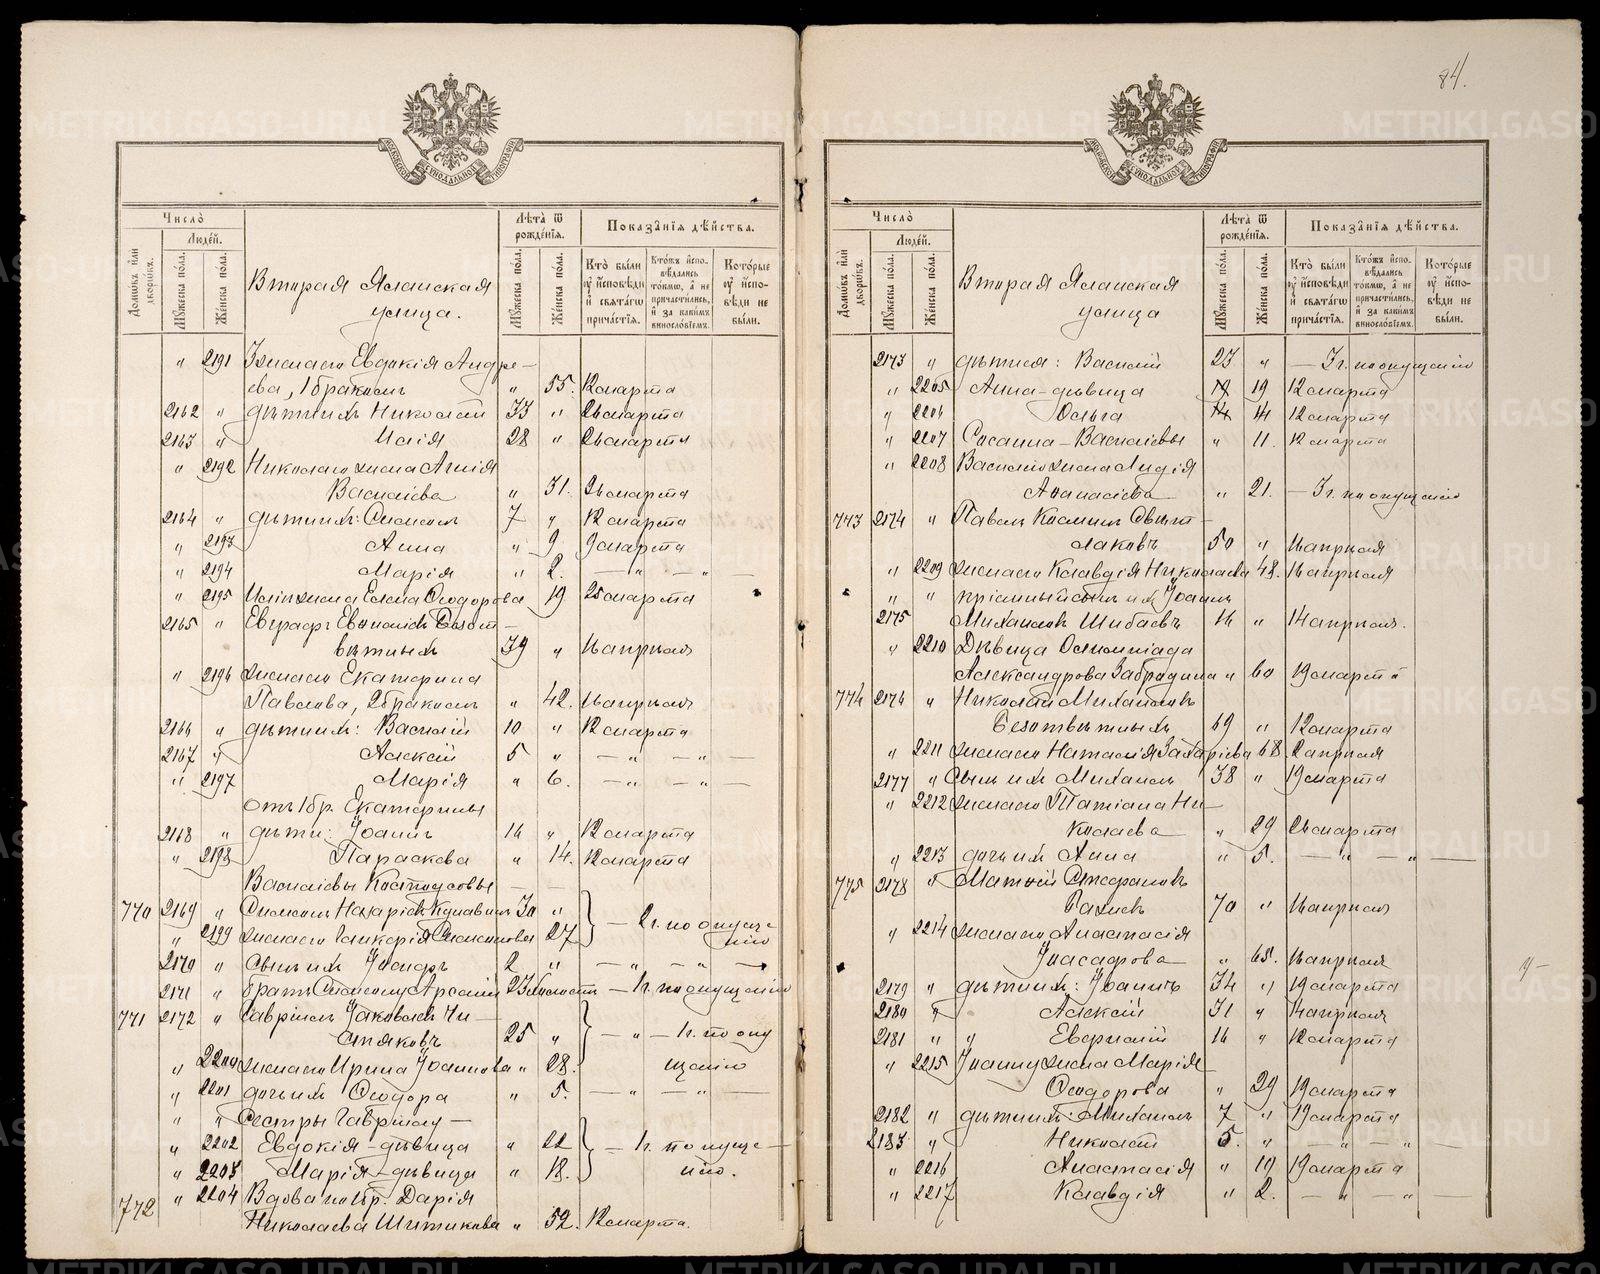 84.
МОСКОВСКОЙ СѴНОДАЛЬНОЙ ТИПОГРАФІИ
Число̀
Людей.
Домѡвъ или дворѡвъ.
Мꙋжеска пола.
Женска пола.
Вторая Ясашская
улица.
Лѣта ѿ рожденїѧ.
Мꙋжеска пола.
Женска пола.
Показанїѧ дѣйства.
Кто были ꙋ исповѣди и свѧтагѡ причастїѧ.
Ктожъ исповѣдались токмѡ, а не причастились, и за какимъ винословїемъ.
Которые ꙋ исповѣди не были.
" 2191 Жена его Евдокія Андре-
ева, 1 бракомъ " 55. 12 марта
2162 " дѣти ихъ Николай 33 " 26 марта
2163 " Илія 28 " 26 марта
" 2192 Николаю жена Агнія
Васильева " 31. 26 марта
2164 " дѣти ихъ: Симеонъ 7 " 12 марта
" 2193 Анна " 9 9 марта
" 2194 Марія " 2. — " — " —
" 2195 Иліи жена Елена Ѳеодорова 19 25 марта
2165 " Евграфъ
вѣтныхъ 39 " 16 апрѣля
" 2196 жена его Екатерина
Павлова, 2 бракомъ " 42. 16 апрѣля
2166 " дѣти ихъ: Василій 10 " 12 марта
2167 " Алексій 5 " — " — " —
" 2197 Марія " 6. — " — " —
отъ 1 бр. Екатерины
2168 " дѣти: Іоаннъ 16 " 12 марта
" 2198 Параскева " 14. 12 марта
Васильевы
770 2169 " Симеонъ 30 " — 2 г. по опуще-
" 2199 жена его Гликерія Симеонова 27 нію
2170 " Сынъ ихъ Іосифъ 2 " — " — " —
2171 " братъ Симеону Арсеній 23 холостъ — 1 г. по опущенію
771 2172 " Гавріилъ Іаковлевъ Чи-
стяковъ 25 " — " — 1 г. по опу
" 2200 жена его Ирина Іоаннова " 28. щенію
" 2201 дочь ихъ Ѳеодора " 5. — " — " —
" " Сестры Гавріилу —
" 2202 Евдокія-дѣвица " 22 — 1 г. по опуще-
" 2203 Марія-дѣвица " 18. нію.
772 " 2204 Вдова по 1 бр. Дарія
Николаева Шитикова " 52. 12 марта.
Число̀
Людей.
Домѡвъ или дворѡвъ.
Мꙋжеска пола.
Женска пола.
Вторая Ясашская
улица
Лѣта ѿ рожденїѧ.
Мꙋжеска пола.
Женска пола.
Показанїѧ дѣйства.
Кто были ꙋ исповѣди и свѧтагѡ причастїѧ.
Ктожъ исповѣдались токмѡ, а не причастились, и за какимъ винословїемъ.
Которые ꙋ исповѣди не были.
2173 " дѣти ея: Василій 23 " — 3 г. по опущенію
" 2205 Анна-дѣвица 19 12 марта
" 2206 Ольга 14 12 марта
" 2207 Сосанна-Васильевы " 11. 12 марта
" 2208 Василію жена Лидія
Аѳанасіева " 21. — 3 г. по опущенію
773 2174 " Павелъ Космичъ Свѣт-
лаковъ 50 " 16 апрѣля
" 2209 жена его Клавдія Николаева 48. 16 апрѣля
" " пріемный сынъ ихъ Іоаннъ
2175 Михаиловъ Шибаевъ 16 " 14 апрѣля.
" 2210 Дѣвица Олимпіада
Александрова Забродина " 60 19 марта
774 2176 " Николай Михаиловъ
Безотвѣтныхъ 69 " 12 марта
" 2211 жена его Наталія Захаріева 68 2 апрѣля
2177 " Сынъ ихъ Михаилъ 38 " 19 марта
" 2212 жена его Татіана Ни-
колаева " 29 26 марта
" 2213 дочь ихъ Анна " 5. — " — " —
775 2178 " Матѳій Стефановъ
70 " 16 апрѣля
" 2214 жена его Анастасія
Іоасафова " 65. 16 апрѣля
2179 " дѣти ихъ: Іоаннъ 34 " 19 марта
2180 " Алексій 31 " 14 апрѣля
2181 " Евгеній 16 " 12 марта
" 2215 Іоанну жена Марія
Ѳеодорова " 29 19 марта
2182 " дѣти ихъ: Михаилъ 7 " 19 марта
2183 " Николай 5. " — " — " —
" 2216 Анастасія " 10 19 марта
" 2217 Клавдія " 2. — " — " —
METRIKI.GASO-URAL.RU